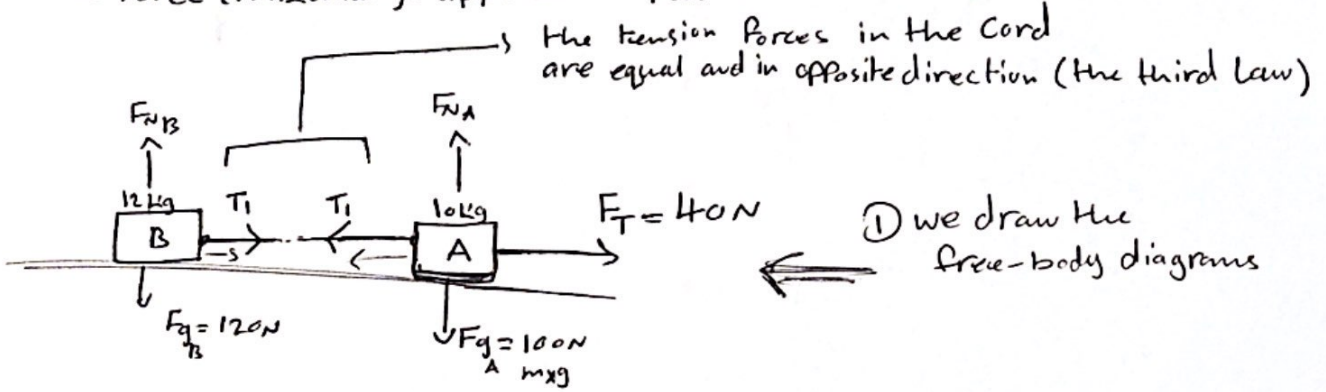 the tension forces in the Cord
are equal and in opposite direction (the third Law)
F_NB
F_NA
12 kg
T1
T1
10 kg
B
A
F_T = 40N
① we draw the
free-body diagrams
F_gB = 120N
F_gA = 100N
mxg